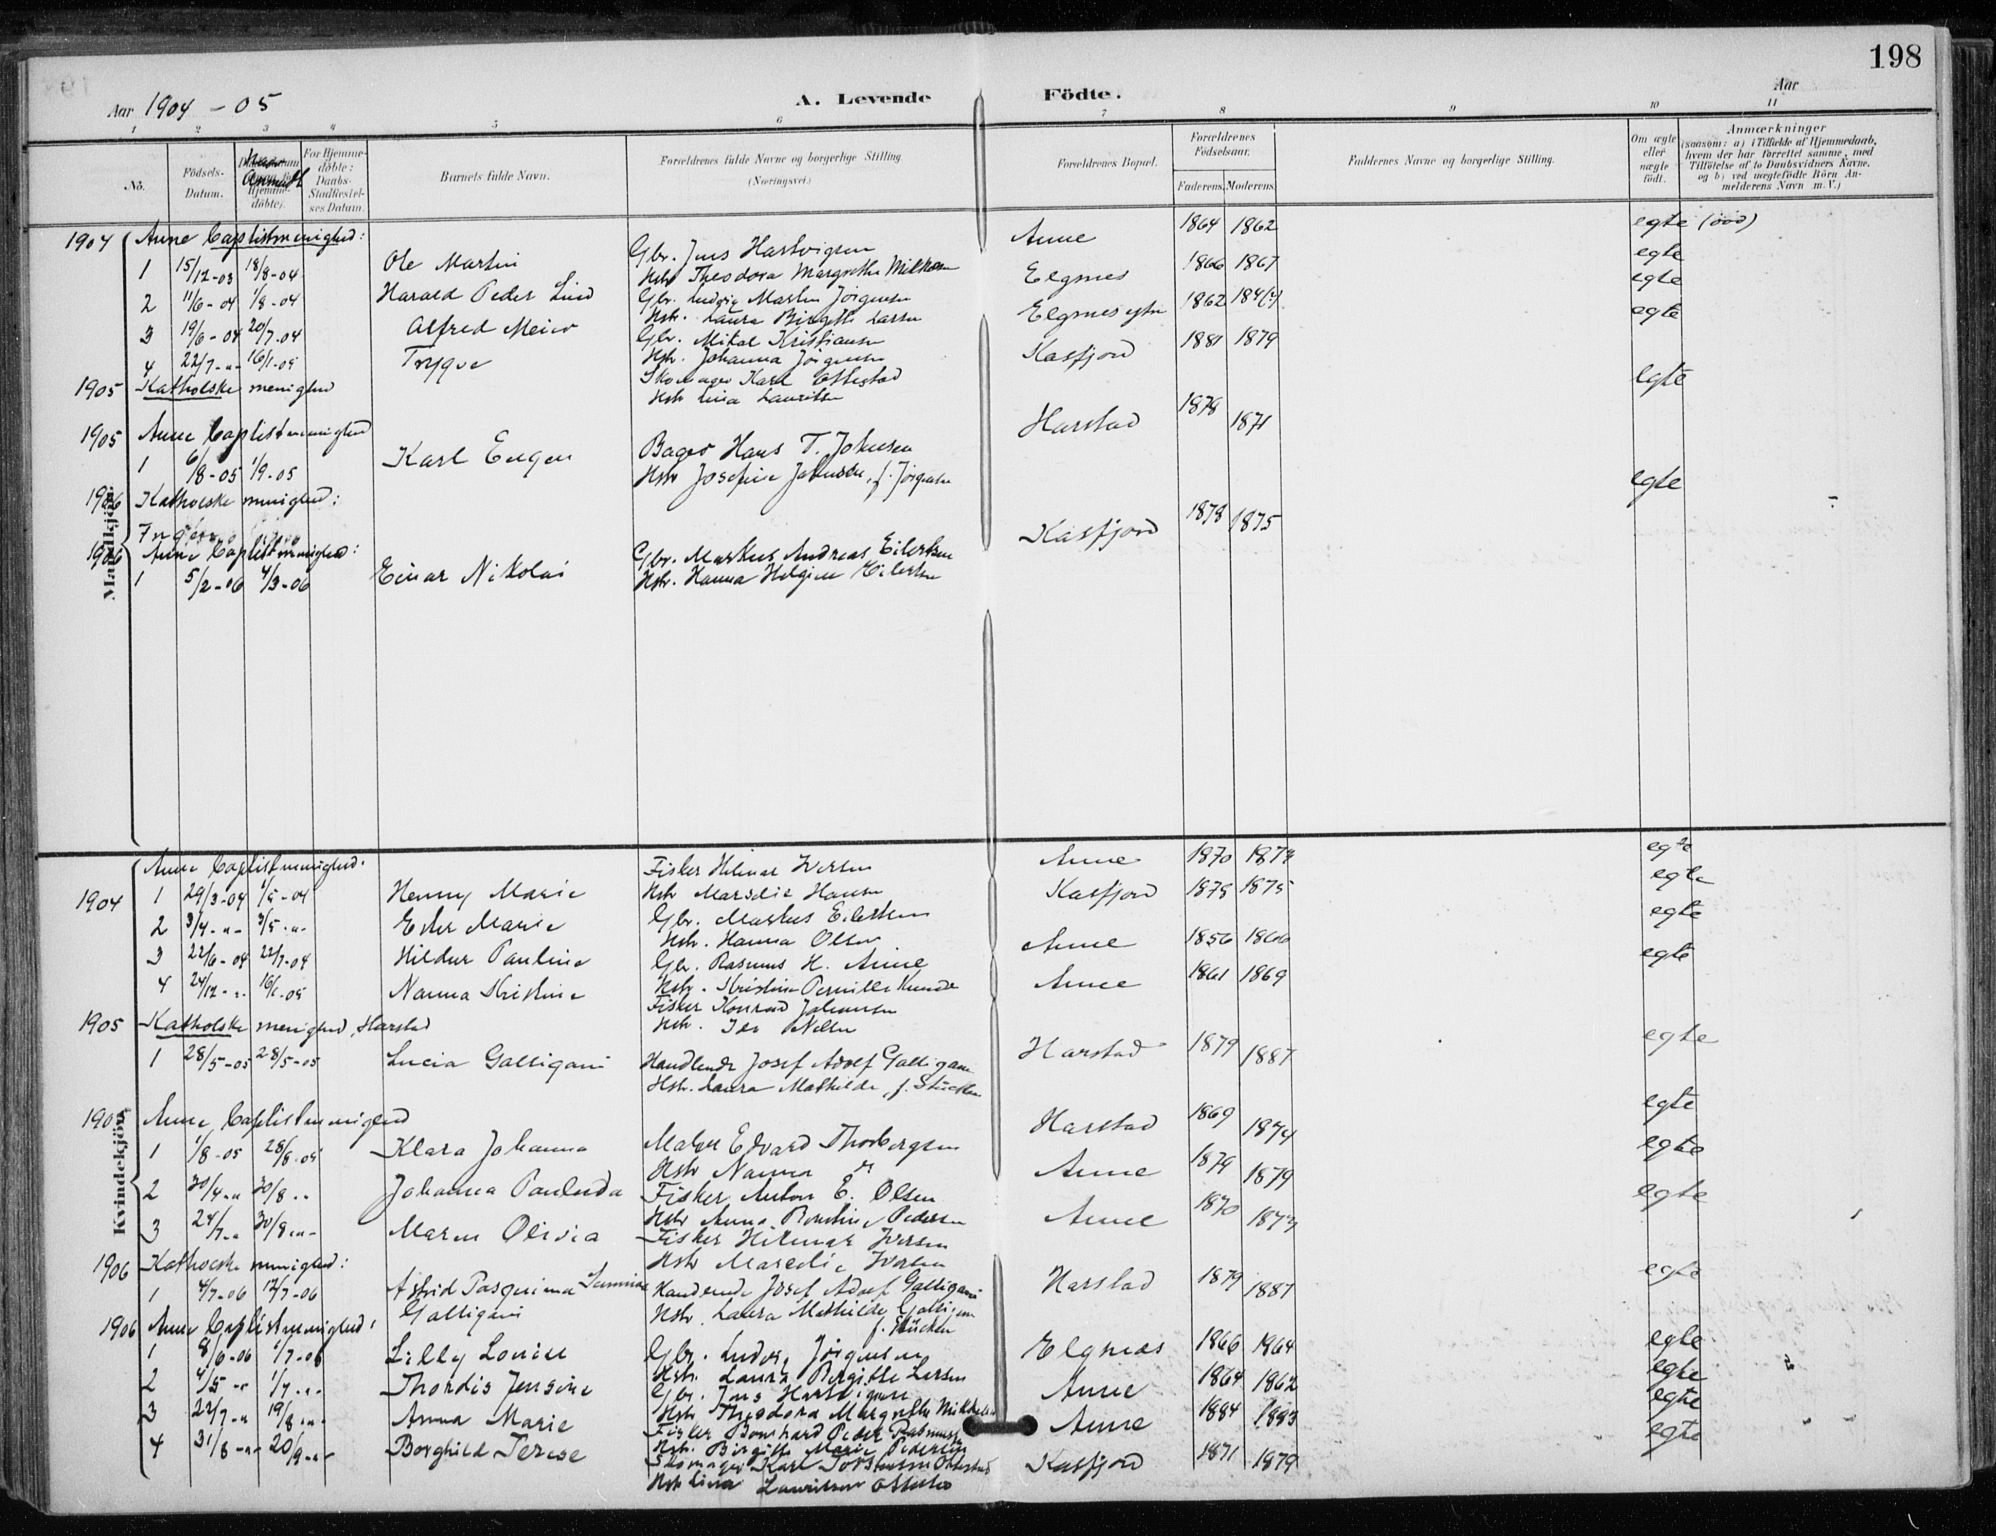 198
Aar 1904 - 05
A. Levende Födte.
Aar
1 2 3 4 5 6 7 8 9 10 11
No. Födsels-Datum. Anmeldt For Hjemme-döbte: Daabs-Stadfæstel-ses Datum. Barnets fulde Navn. Forældrenes fulde Navne og borgerlige Stilling (Næringsvei.) Forældrenes Bopæl. Forældrenes Födselsaar. Faderens. Moderens. Faddernes Navne og borgerlige Stilling. Om ægte eller uægte födt. Anmærkninger (saasom: a) i Tilfælde af Hjemmedaab, hvem der har forrettet samme, med Tilföielse af to Daabsvidners Navne, og b) ved uægtefödte Börn An-melderens Navn m. V.)
Mandkjön.
1904 Anne Baptistmenighed:
1 15/12-03 18/8-04 Ole Martin Gbr. Jens Hartvigsen Anne 1864 1862 egte
Hstr Theodora Margrethe
2 11/6-04 1/8-04 Harald Peder Lind Gbr. Ludvig Martin Jörgensen Elgsnes 1866 1867 egte
Hstr. Laura Birgitte Larsen
3 19/6-04 20/7-04 Alfred Meier Gbr. Mikal Kristiansen 1862 egte
Hstr. Johanna Jörgensen
4 22/7-"- 16/1-05 Trygve Skomager Karl Kasfjord 1881 1879 egte
Hstr Lina Lauritsen
1905 Katholske menighed
egte
1905 Anne Baptistmenighed
1 6/8-05 1/9-05 Karl Eugen Bager Hans T. Johnsen Harstad 1878 1871
Hstr Josefine Johnsen, f. Jörgensen
1906 Katholske menighed:
Ingen
egte
1906 Anne Baptistmenighed:
1 5/2-06 4/3-06 Einar Nikolai Gbr. Markus Andreas Eilertsen Kasfjord 1878 1875
Hstr. Hanna Helgine Eilertsen
Kvindekjön
Anne Baptistmenighed.
1904 1 29/3-04 1/5-04 Henny Marie Fisker Hilmar Iversen Anne 1870 1873 egte
Hstr Marselie Hansen
2 3/4-"- 3/5-"- Ester Marie Gbr. Markus Eilertsen Kasfjord 1878 1875 egte
Hstr. Hanna Olsen
3 22/6-04 22/7-04 Hildur Pauline Gbr. Rasmus H. Anne Anne 1856 1866 egte
Hstr. Kristine Pernille
4 24/12-"- 16/1-05 Nanna Kristine Fisker Konrad Johansen Anne 1861 1869 egte
Hstr. Ida Nilsen
1905 Katholske menighed, Harstad
1 28/5-05 28/5-05 Lucia Galligani Handlende Josef Adolf Galligani Harstad 1879 1887 egte
Hstr. Laura Mathilde, f. Stücken
1905 Anne Baptistmenighed
1 1/8-05 28/8-05 Klara Johanna Maler Edvard Thorbergsen Harstad 1869 1874 egte
Hstr Nanna
2 30/4-"- 30/8-"- Johanna Paulinda Fisker Anton E. Olsen Anne 1879 1879 egte
Hstr Anna Pedersen
3 24/7-"- 30/8-"- Maren Olivia Fisker Hilmar Iversen Anne 1870 1873 egte
Hstr Marselie Iversen
1906 Katholske menighed:
1 4/7-06 17/7-06 Astrid Pasquima Handlende Josef Adolf Galligani Harstad 1879 1887 egte
Galligani Hstr. Laura Mathilde Galligani
f. Stücken
1906 Anne Baptistmenighed:
1 8/6-06 1/7-06 Lilly Louise Gbr. Ludvig Jörgensen Elgsnes 1866 1864 egte
Hstr. Laura Birgitte Larsen
2 4/5-"- 1/7-"- Thordis Jensine Gbr. Jens Hartvigsen Anne 1864 1862 egte
Hstr Theodora Margrethe Mikkelsen
3 22/7-"- 19/8-"- Anna Marie Fisker Bernhard Peder Rasmussen Anne 1884 1883 egte
Hstr. Birgitte Marie Pedersen
4 31/8-"- 20/9-"- Borghild Terese Skomager Karl Kasfjord 1871 1879 egte
Hstr Lina Lauritsen